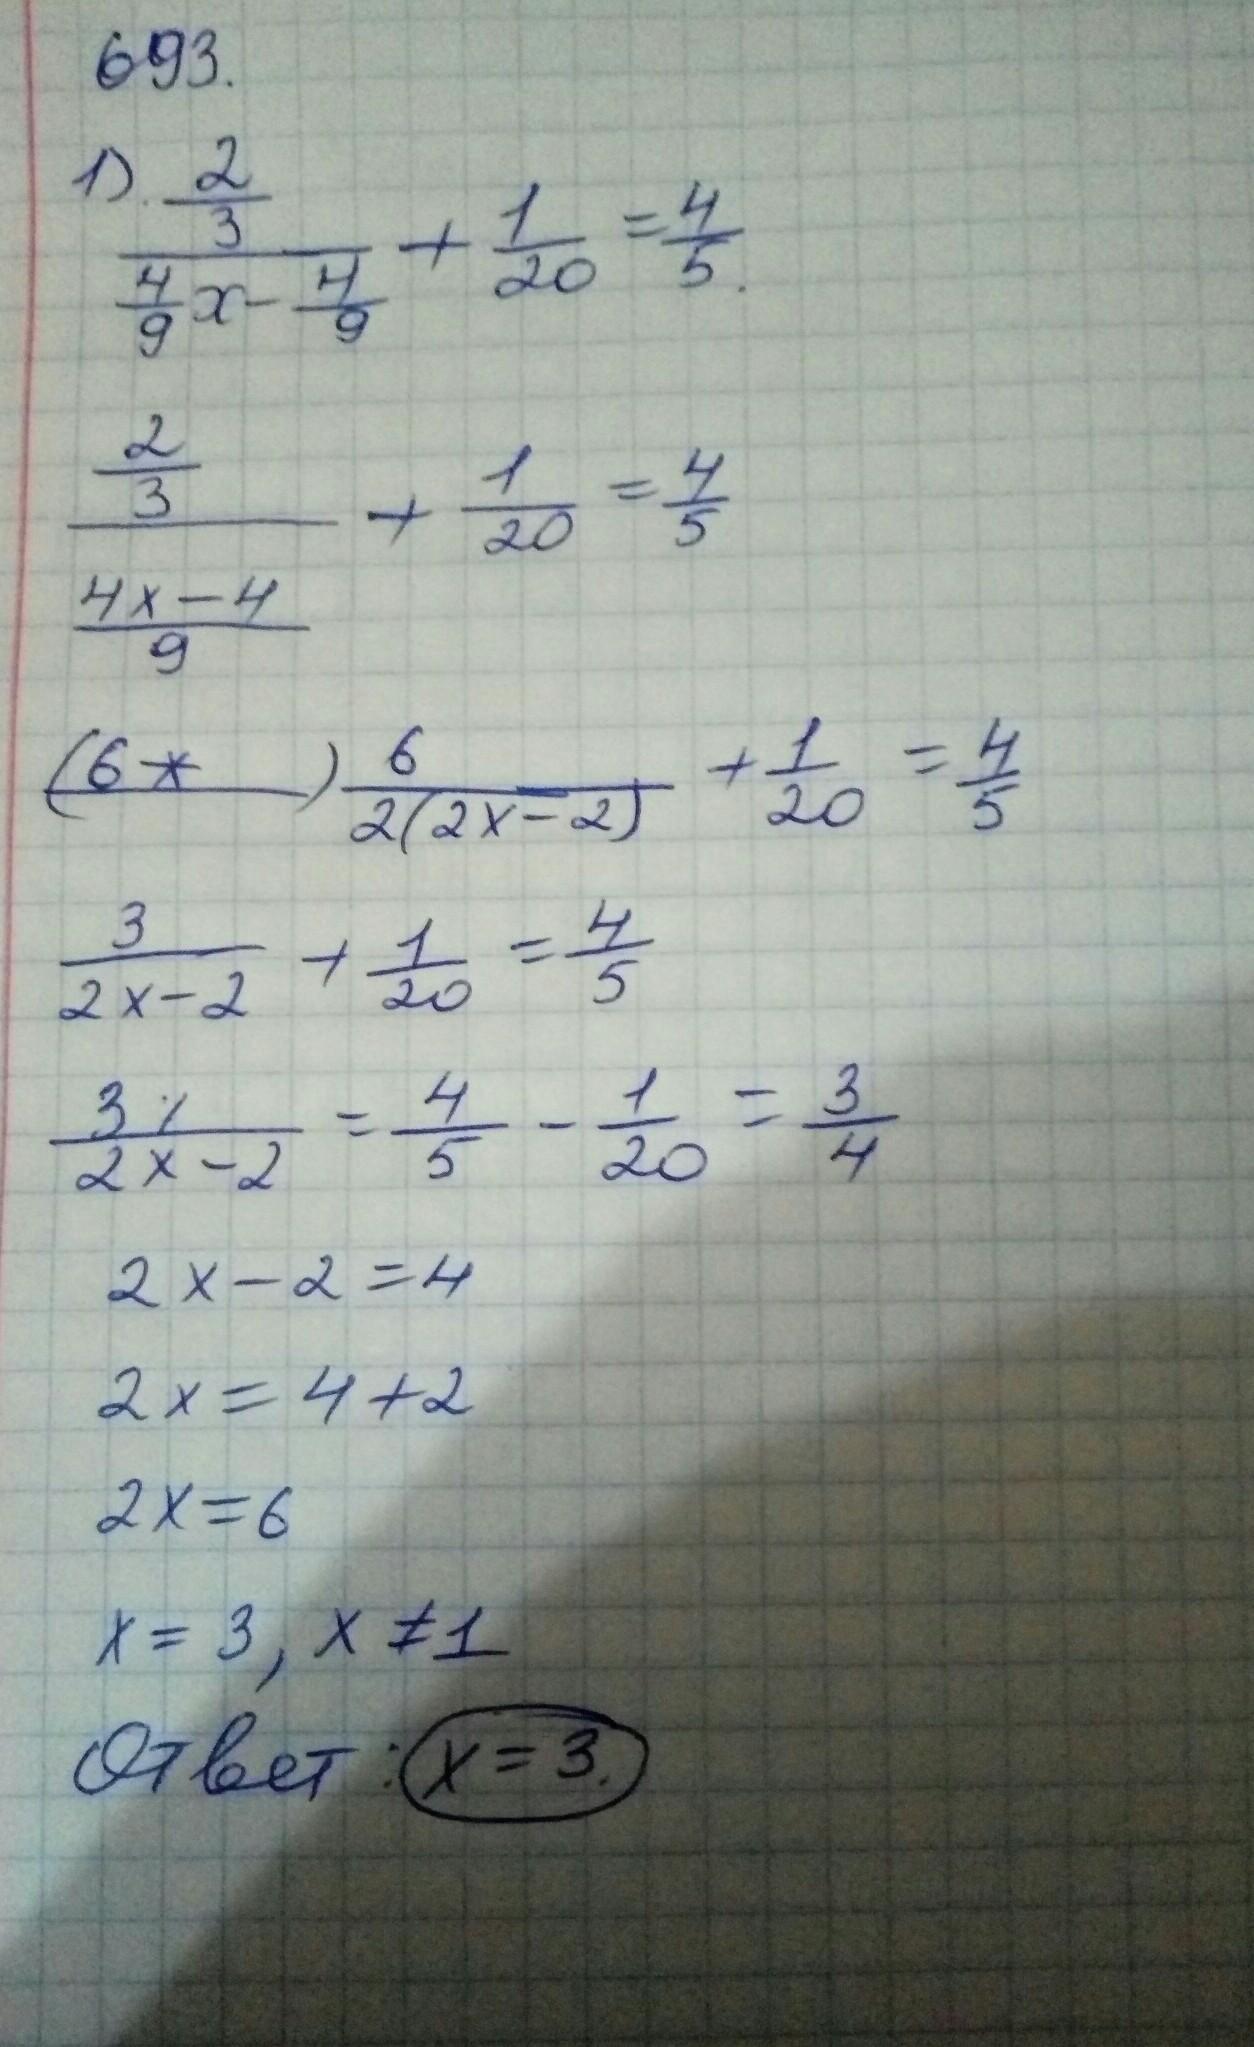 693.
1). (2/3)/(4/9 x - 4/9) + 1/20 = 4/5.
(2/3)/((4x-4)/9) + 1/20 = 4/5
6/(2(2x-2)) + 1/20 = 4/5
3/(2x-2) + 1/20 = 4/5
3/(2x-2) = 4/5 - 1/20 = 3/4
2x-2=4
2x=4+2
2x=6
x=3, x≠1
Ответ: x=3.